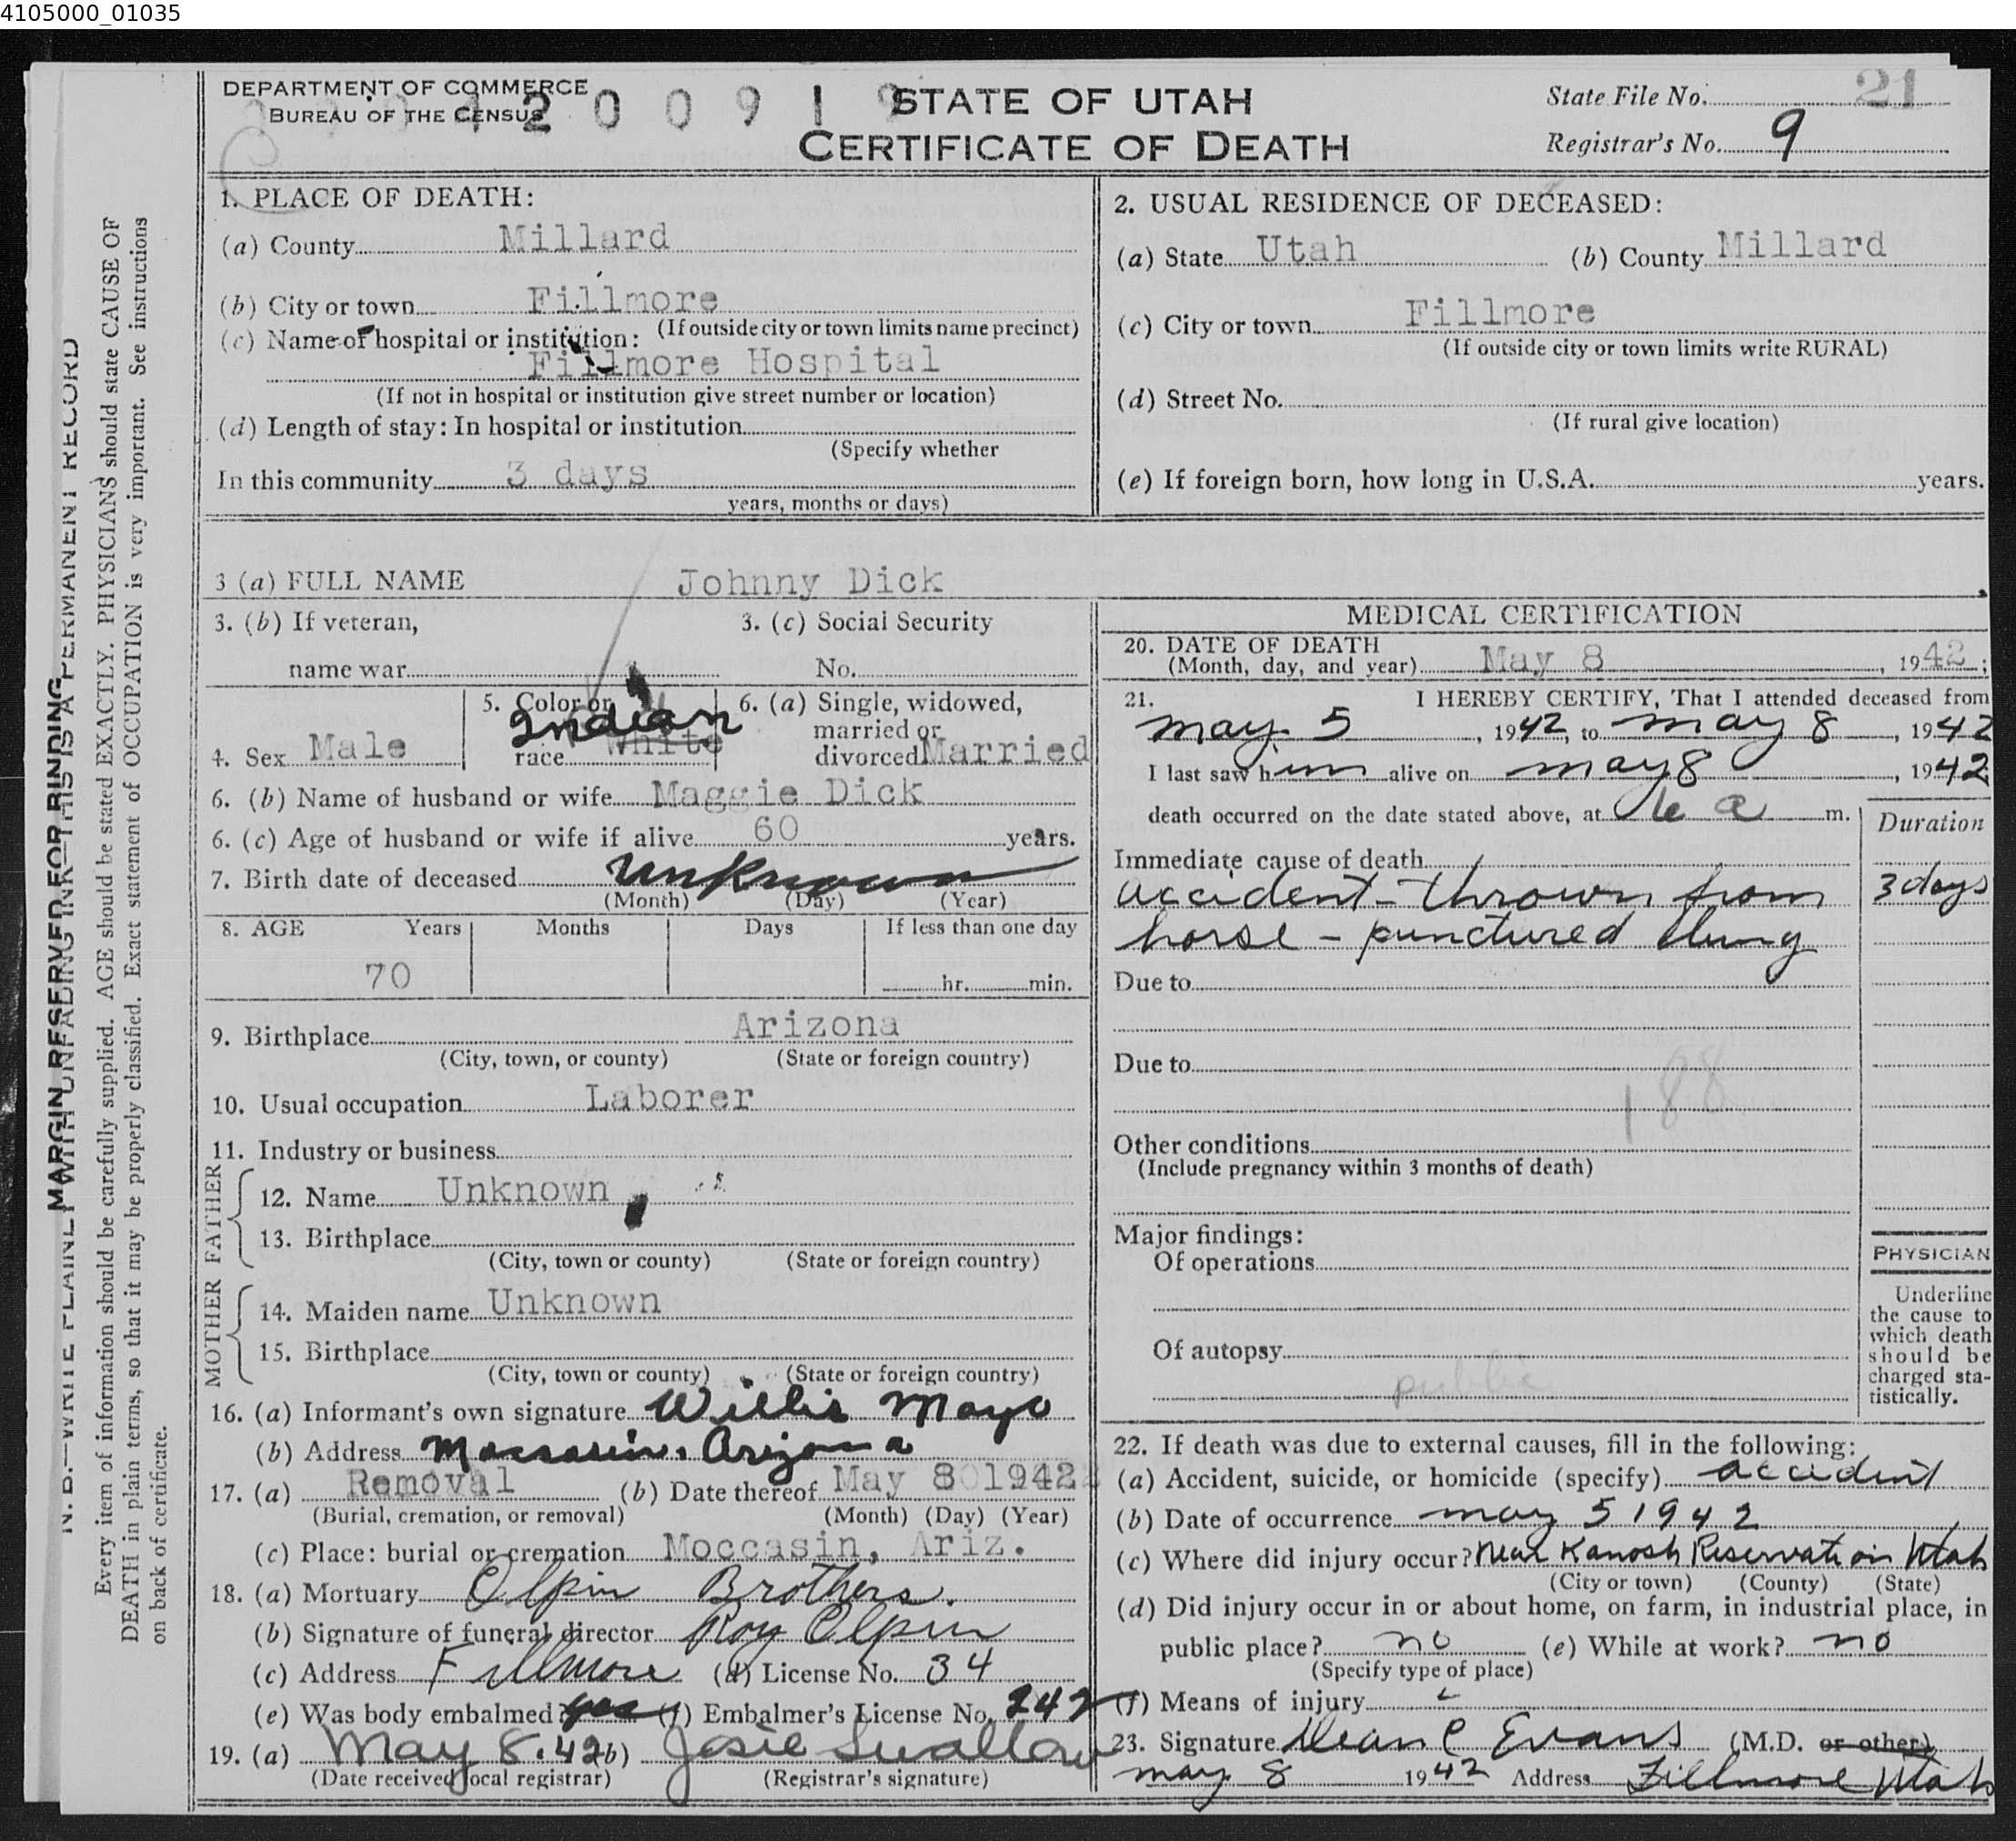 4105000_01035
DEPARTMENT OF COMMERCE
BUREAU OF THE CENSUS
2 0 0 9 1
STATE OF UTAH
CERTIFICATE OF DEATH
State File No. 21
Registrar's No. 9
MARGIN RESERVED FOR BINDING
N. B.—WRITE PLAINLY WITH UNFADING INK—THIS IS A PERMANENT RECORD
Every item of information should be carefully supplied. AGE should be stated EXACTLY. PHYSICIANS should state CAUSE OF
DEATH in plain terms, so that it may be properly classified. Exact statement of OCCUPATION is very important. See instructions
on back of certificate.
1. PLACE OF DEATH:
(a) County Millard
(b) City or town Fillmore
(If outside city or town limits name precinct)
(c) Name of hospital or institution:
Fillmore Hospital
(If not in hospital or institution give street number or location)
(d) Length of stay: In hospital or institution
(Specify whether
In this community 3 days
years, months or days)
2. USUAL RESIDENCE OF DECEASED:
(a) State Utah (b) County Millard
(c) City or town Fillmore
(If outside city or town limits write RURAL)
(d) Street No.
(If rural give location)
(e) If foreign born, how long in U.S.A. years.
3 (a) FULL NAME Johnny Dick
3. (b) If veteran,
name war
3. (c) Social Security
No.
4. Sex Male
5. Color or
race White Indian
6. (a) Single, widowed,
married or
divorced Married
6. (b) Name of husband or wife Maggie Dick
6. (c) Age of husband or wife if alive 60 years.
7. Birth date of deceased unknown
(Month) (Day) (Year)
8. AGE Years Months Days If less than one day
70 hr. min.
9. Birthplace Arizona
(City, town, or county) (State or foreign country)
10. Usual occupation Laborer
11. Industry or business
FATHER
12. Name Unknown
13. Birthplace
(City, town or county) (State or foreign country)
MOTHER
14. Maiden name Unknown
15. Birthplace
(City, town or county) (State or foreign country)
16. (a) Informant's own signature Willis Mayo
(b) Address Moccasin, Arizona
17. (a) Removal (b) Date thereof May 8 1942
(Burial, cremation, or removal) (Month) (Day) (Year)
(c) Place: burial or cremation Moccasin, Ariz.
18. (a) Mortuary Olpin Brothers.
(b) Signature of funeral director Roy Olpin
(c) Address Fillmore (d) License No. 34
(e) Was body embalmed? yes (f) Embalmer's License No. 242
19. (a) May 8.42 (b) Josie Swallow
(Date received local registrar) (Registrar's signature)
MEDICAL CERTIFICATION
20. DATE OF DEATH
(Month, day, and year) May 8, 1942;
21. I HEREBY CERTIFY, That I attended deceased from
May 5, 1942, to May 8, 1942
I last saw him alive on May 8, 1942
death occurred on the date stated above, at 6 a m.
Duration
Immediate cause of death
accident - thrown from 3 days
horse - punctured lung
Due to
Due to
188
Other conditions
(Include pregnancy within 3 months of death)
Major findings:
Of operations
Of autopsy
public
PHYSICIAN
Underline
the cause to
which death
should be
charged sta-
tistically.
22. If death was due to external causes, fill in the following:
(a) Accident, suicide, or homicide (specify) accident
(b) Date of occurrence may 5 1942
(c) Where did injury occur? Near Kanosh Reservation Utah
(City or town) (County) (State)
(d) Did injury occur in or about home, on farm, in industrial place, in
public place? no (e) While at work? no
(Specify type of place)
(f) Means of injury
23. Signature Dean C Evans (M.D. or other)
may 8 1942 Address Fillmore Utah